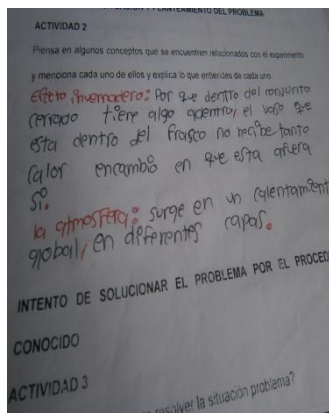 PLANTEAMIENTO DEL PROBLEMA
ACTIVIDAD 2
Piensa en algunos conceptos que se encuentren relacionados con el experimento
y menciona cada uno de ellos y explica lo que entiendes de cada uno.
Efecto invernadero: Por que dentro del conjunto
cerrado tiene algo adentro, el vaso que
esta dentro del frasco no recibe tanto
calor encambio en que esta afuera
Si.
la atmosfera: surge en un calentamient
global, en diferentes capas.
INTENTO DE SOLUCIONAR EL PROBLEMA POR EL PROCED
CONOCIDO
ACTIVIDAD 3
resolver la situación problema?